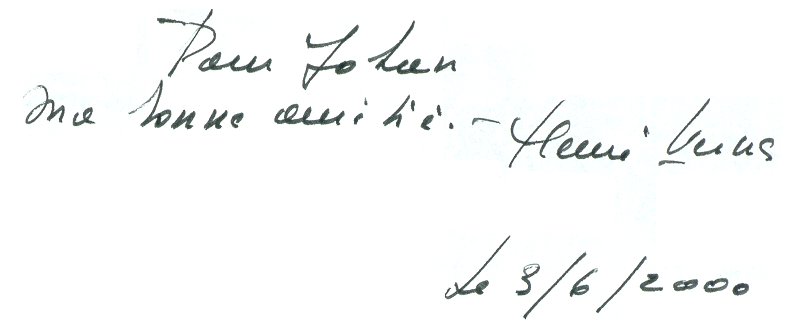 Pour Johan
ma bonne amitié. - Henri Vernes
Le 3/6/2000